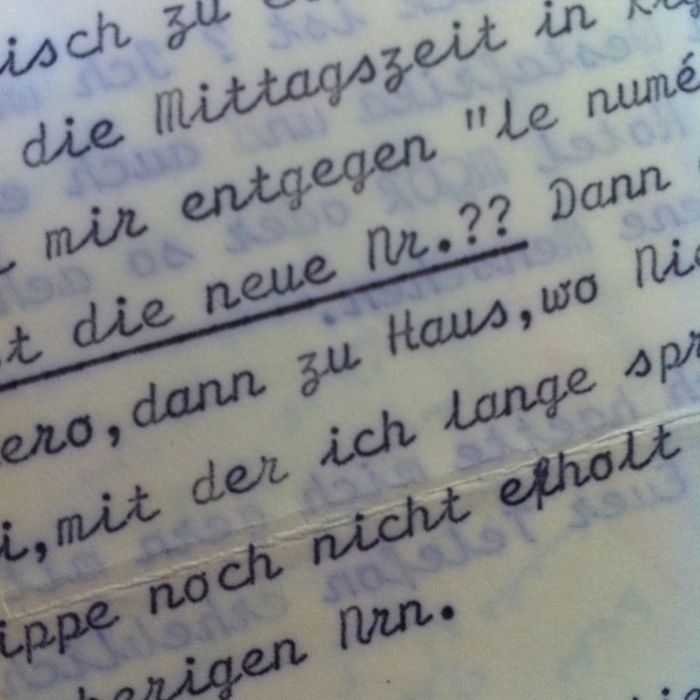 isch zu
die Mittagszeit in
mir entgegen "le numé
t die neue Nr.?? Dann
ero, dann zu Haus, wo Nie
i, mit der ich lange spr
ippe noch nicht erholt
herigen Nrn.